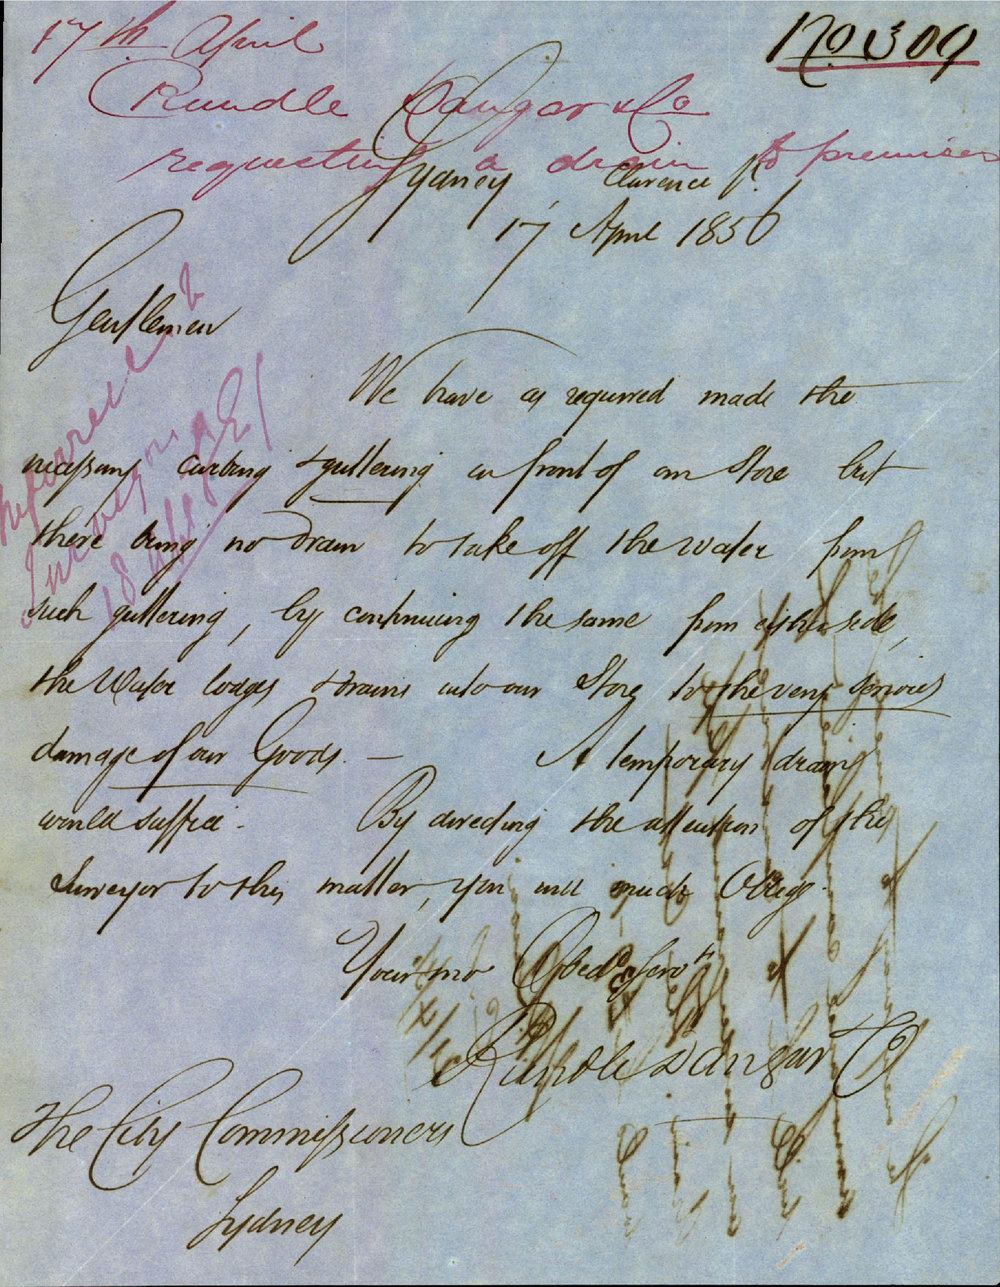 No 309
17th April
Rundle Dangar & Co
requesting a drain to premises
Sydney Clarence St.
17 April 1856
Gentlemen
We have as required made the
necessary curbing & guttering in front of our Store but
there being no Drain to take off the water from
such guttering, by continuing the same from either side,
the Water lodges & drains into our Store to the very serious
damage of our Goods. — A temporary drain
would suffice - By directing the attention of the
Surveyor to this matter, you will much Oblige.
Your mo Obed Servts
Rundle Dangar & Co
The City Commissioners
Sydney
Referred to
Surveyor
18